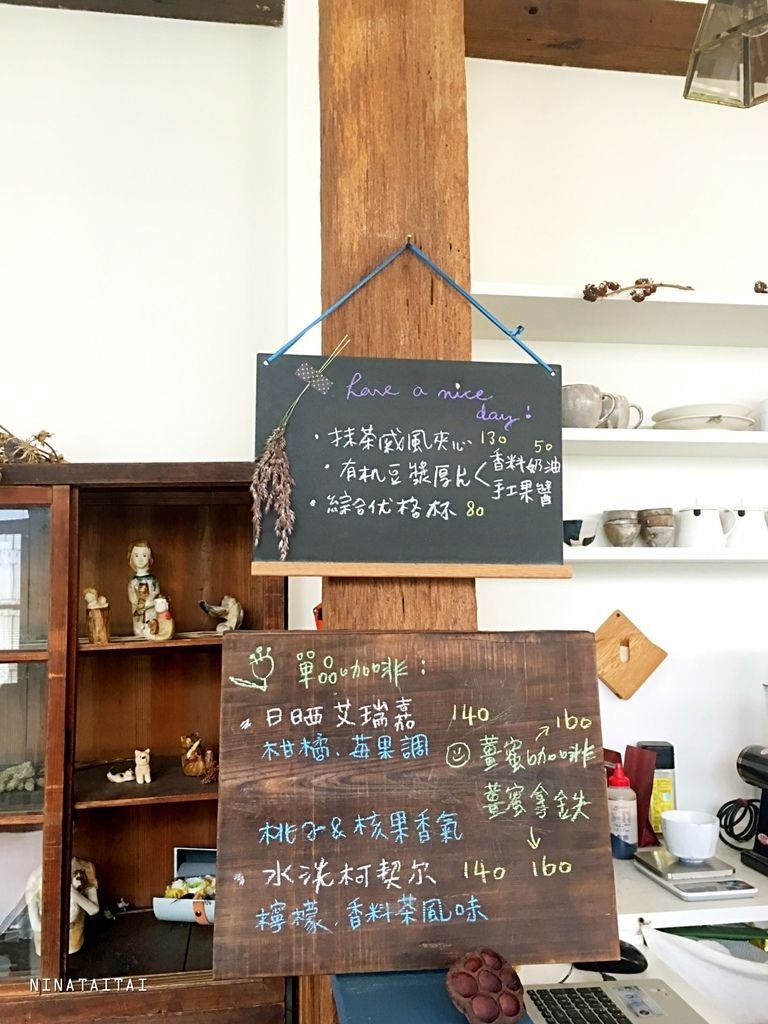 have a nice
day!
·抹茶威風夾心 130
·有机豆漿厚片<香料奶油 50
手工果醬
·綜合优格杯 80
單品咖啡:
日晒艾瑞嘉 140
柑橘、莓果調
薑蜜咖啡 160
薑蜜拿鉄 160
桃子&核果香氣
水洗柯契尔 140
檸檬、香料茶風味
NINATAITAI